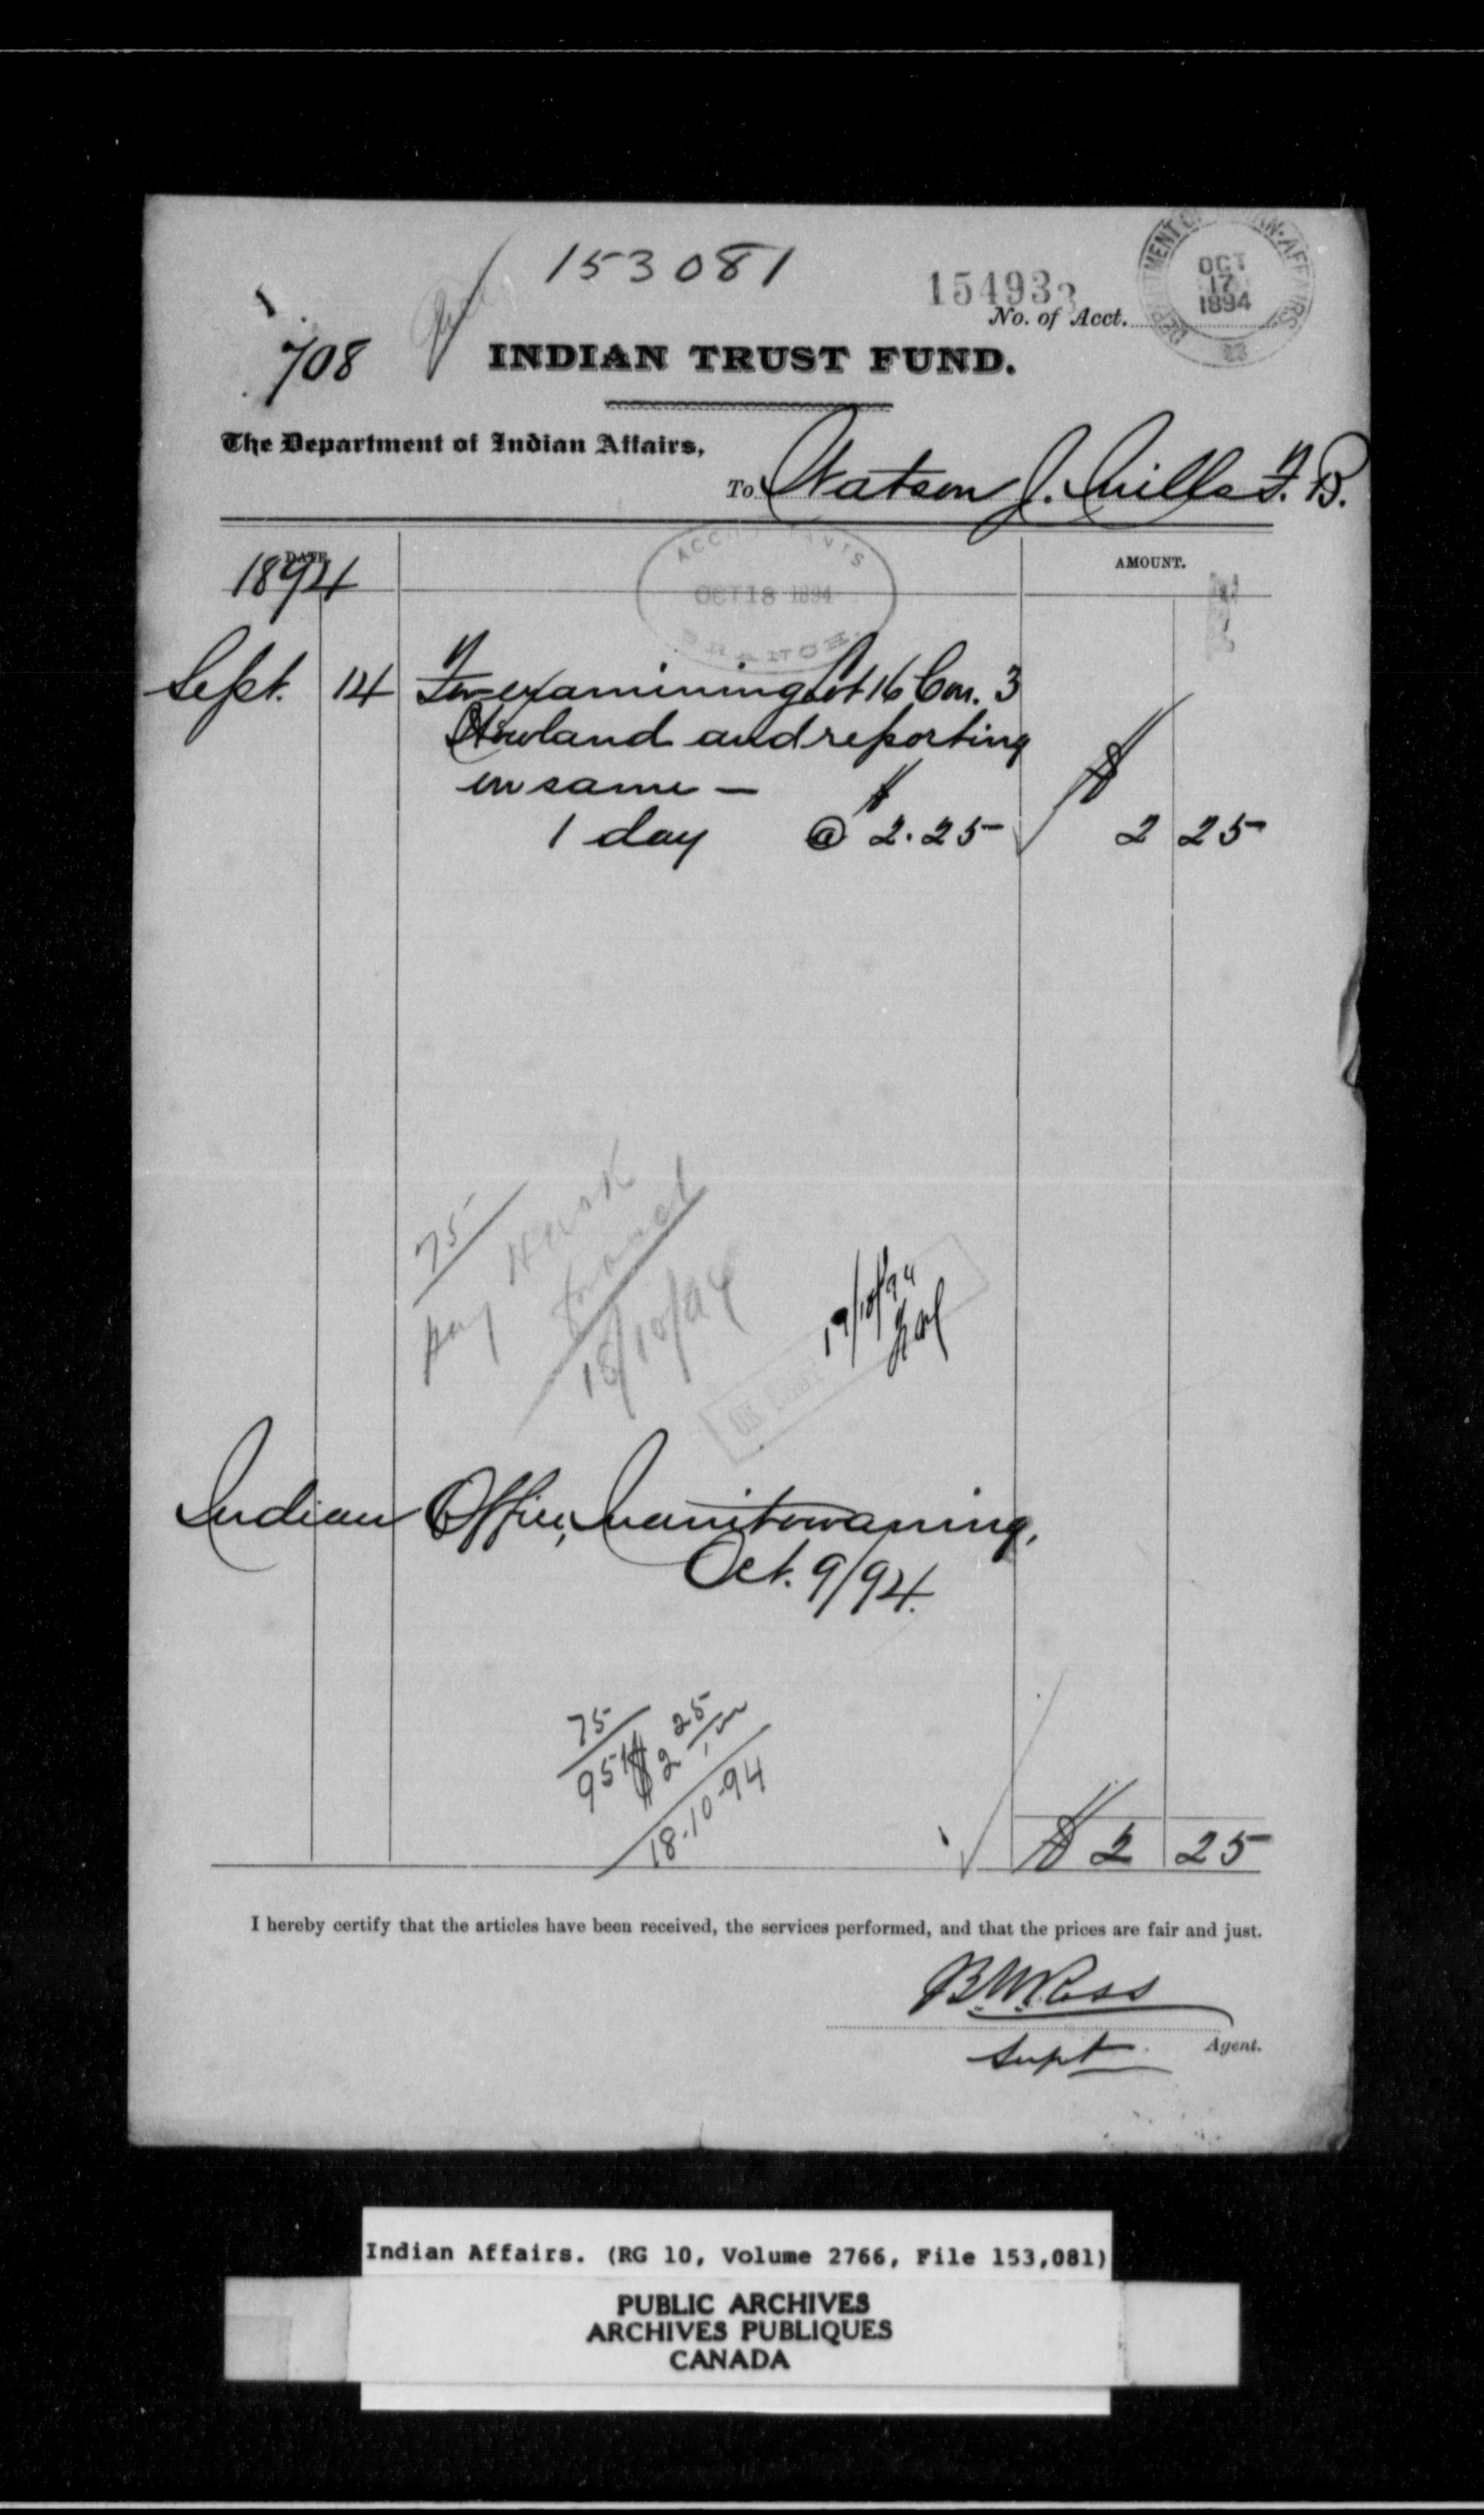 153081
154933
No. of Acct.
DEPARTMENT OF INDIAN AFFAIRS
OCT
17
1894
708
INDIAN TRUST FUND.
The Department of Indian Affairs,
To Watson J. Mills F. B.
DATE
1894
AMOUNT.
ACCOUNTANTS
OCT 18 1894
BRANCH
Sept. 14 For examining Lot 16 Con. 3
Howland and reporting
on same —
1 day @ $2.25 $2 25
75
Pay
18/10/94
19/10/94
Indian Office, Manitowaning,
Oct. 9/94.
75
951 $2 25
18-10-94
$2 25
I hereby certify that the articles have been received, the services performed, and that the prices are fair and just.
B.W. Ross
Supt Agent.
Indian Affairs. (RG 10, Volume 2766, File 153,081)
PUBLIC ARCHIVES
ARCHIVES PUBLIQUES
CANADA